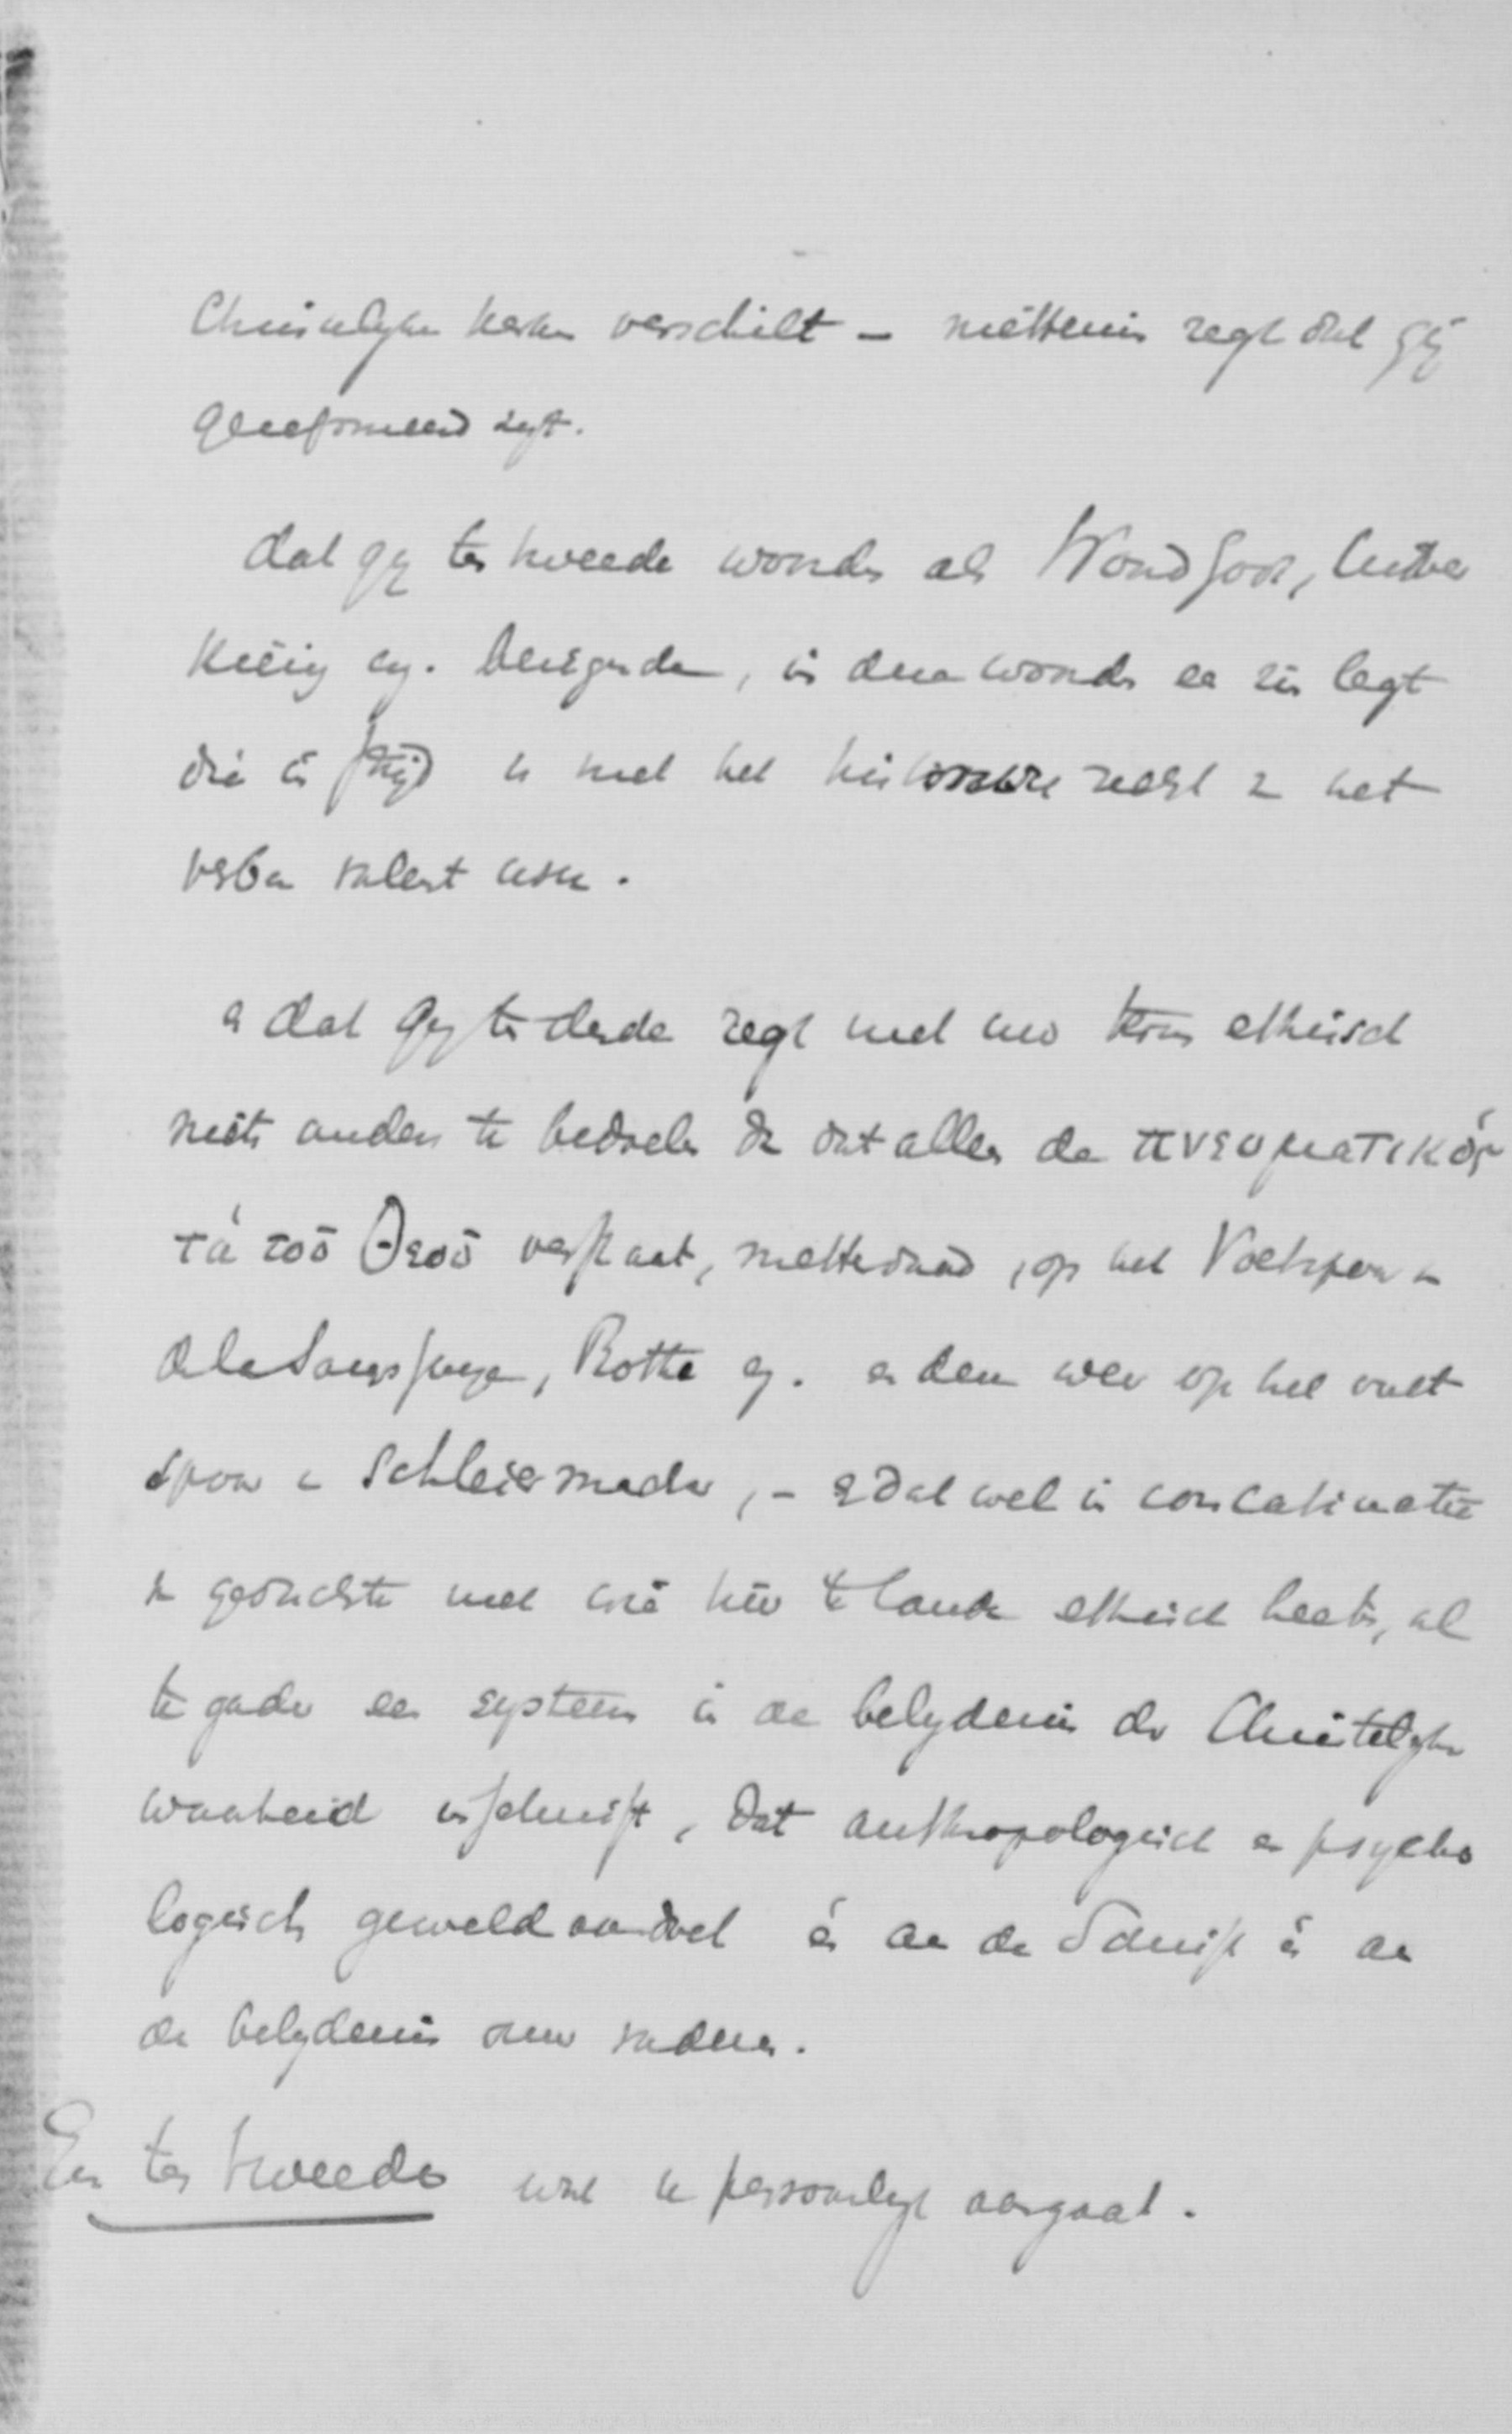 Christelyke kerken verschilt — niettemin zegt dat gij
gereformeerd zyt.
dat gy ten tweede woorden als Woord Gods,
bezigende, in deze woorden een zin legt
die in strijd is met het historisch recht en het
verba valent usu.
en dat Gy ten derde zegt met uw term ethisch
niets anders te bedoelen dan dat alleen de πνευματικός
τά τοῦ Θεοῦ verstaat, metterdaad, op het Voetspoor van
de la Saussaye, Rothe en dezen weer op het voet
spoor van Schleiermacher, – en dat wel in concatinatie
van gedachten met wie hier te lande ethisch heeten, al
te gader een systeem in de belydenis der Christelyke
waarheid inschuift, dat anthropologisch en psycho
logisch geweld aandoet én aan de Schrift én aan
de belydenis onzer vaderen.
En ten tweede wat u persoonlyk aangaat.